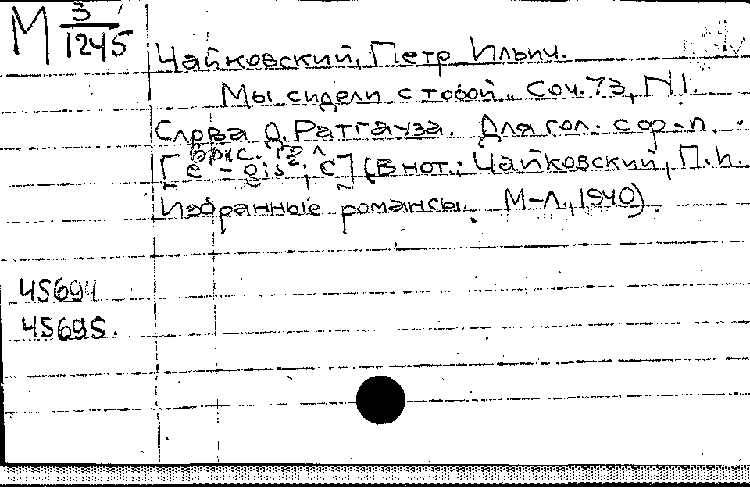 М 3/1245
Чайковский, Петр Ильич.
Мы сидели с тобой. Соч. 73, N1.
Слова Д. Ратгауза. Для гол. с ф-п.
[e¹ - gis², E] (В нот.: Чайковский, П. И.
Избранные романсы. М-Л, 1940).
45694
45695.